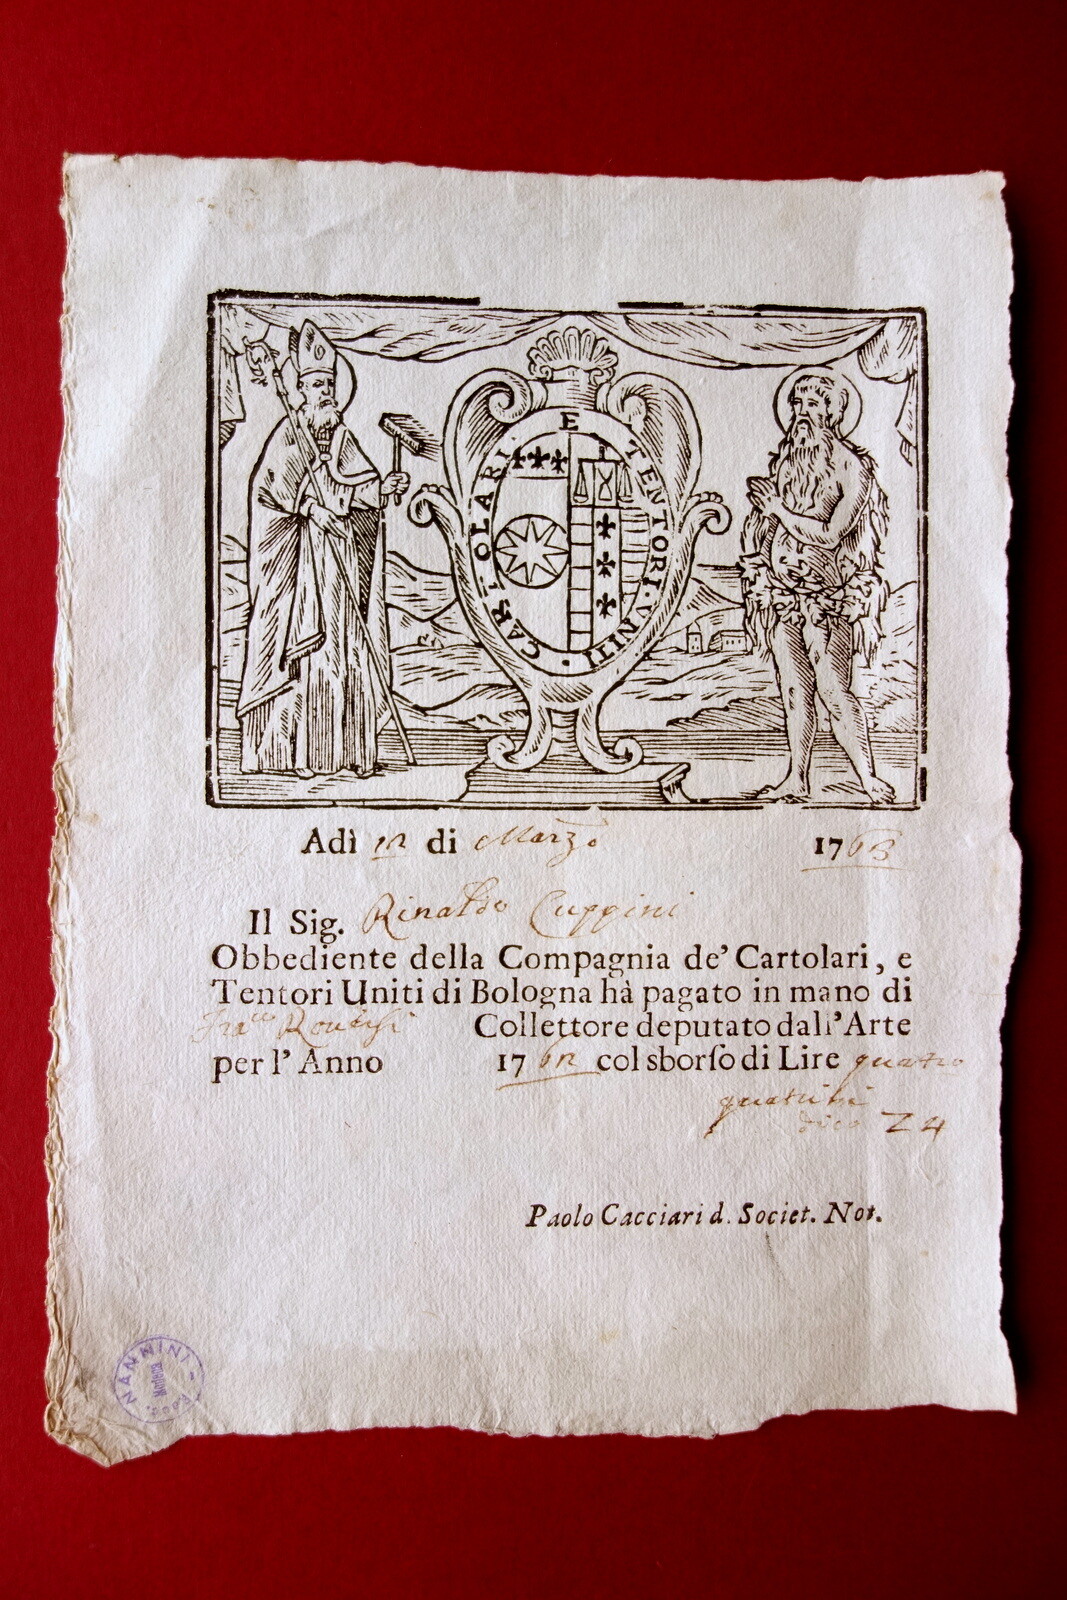 CARTOLARI E TENTORI VNITI
Adì 12 di Marzo 1763
Il Sig. Rinaldo Cuppini
Obbediente della Compagnia de' Cartolari, e
Tentori Uniti di Bologna hà pagato in mano di
Collettore deputato dall'Arte
per l'Anno 1762 col sborſo di Lire quatro
quatrini
dico
Paolo Cacciari d. Societ. Not.
NANNINI